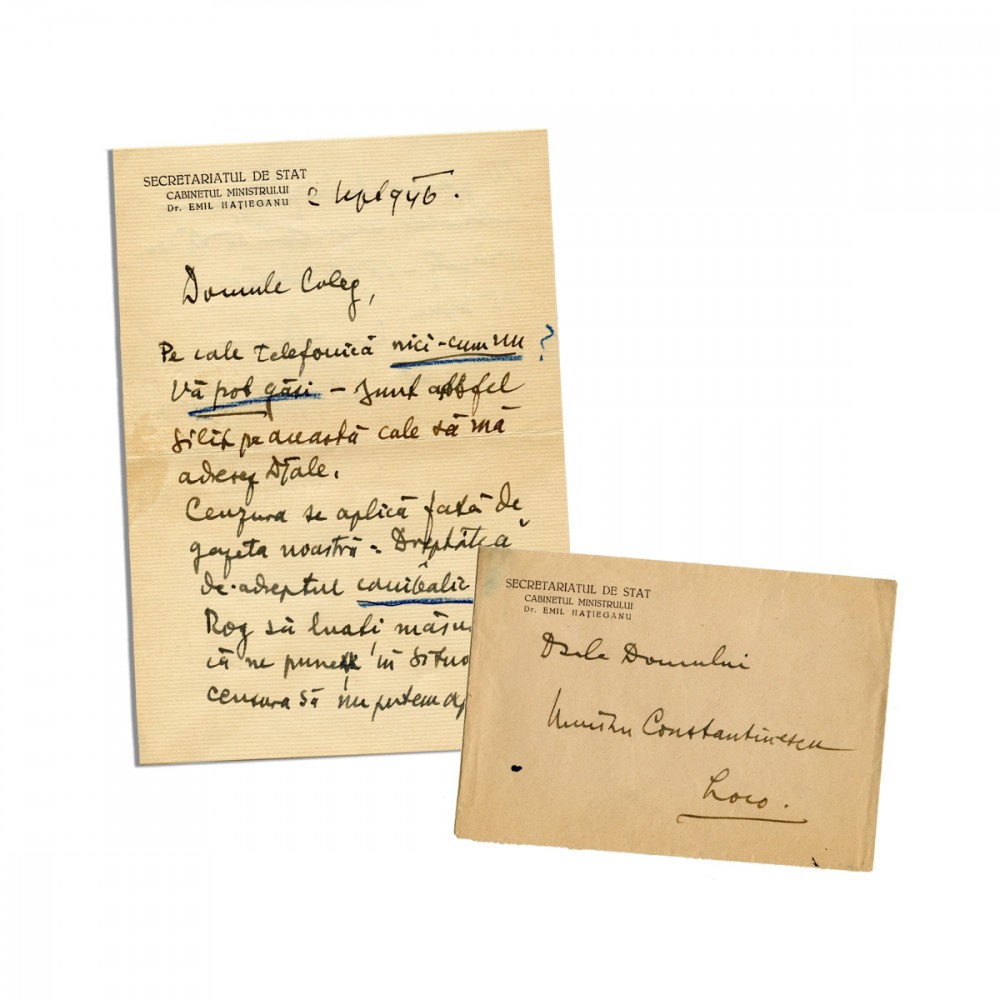 SECRETARIATUL DE STAT
CABINETUL MINISTRULUI
Dr. EMIL HAȚIEGANU
2 1946.
Domnule Coleg,
Pe cale telefonică nici-cum nu ?
Vă pot găsi – Sunt astfel
silit pe această cale să mă
adresez Dtale.
Cenzura se aplică față de
gazeta noastră = Dreptatea
de-adreptul canibalic
Rog să luați măsu
că ne punem în situa
censura să nu putem ap
SECRETARIATUL DE STAT
CABINETUL MINISTRULUI
Dr. EMIL HAȚIEGANU
Dsale Domnului
Constantinescu
Loco.